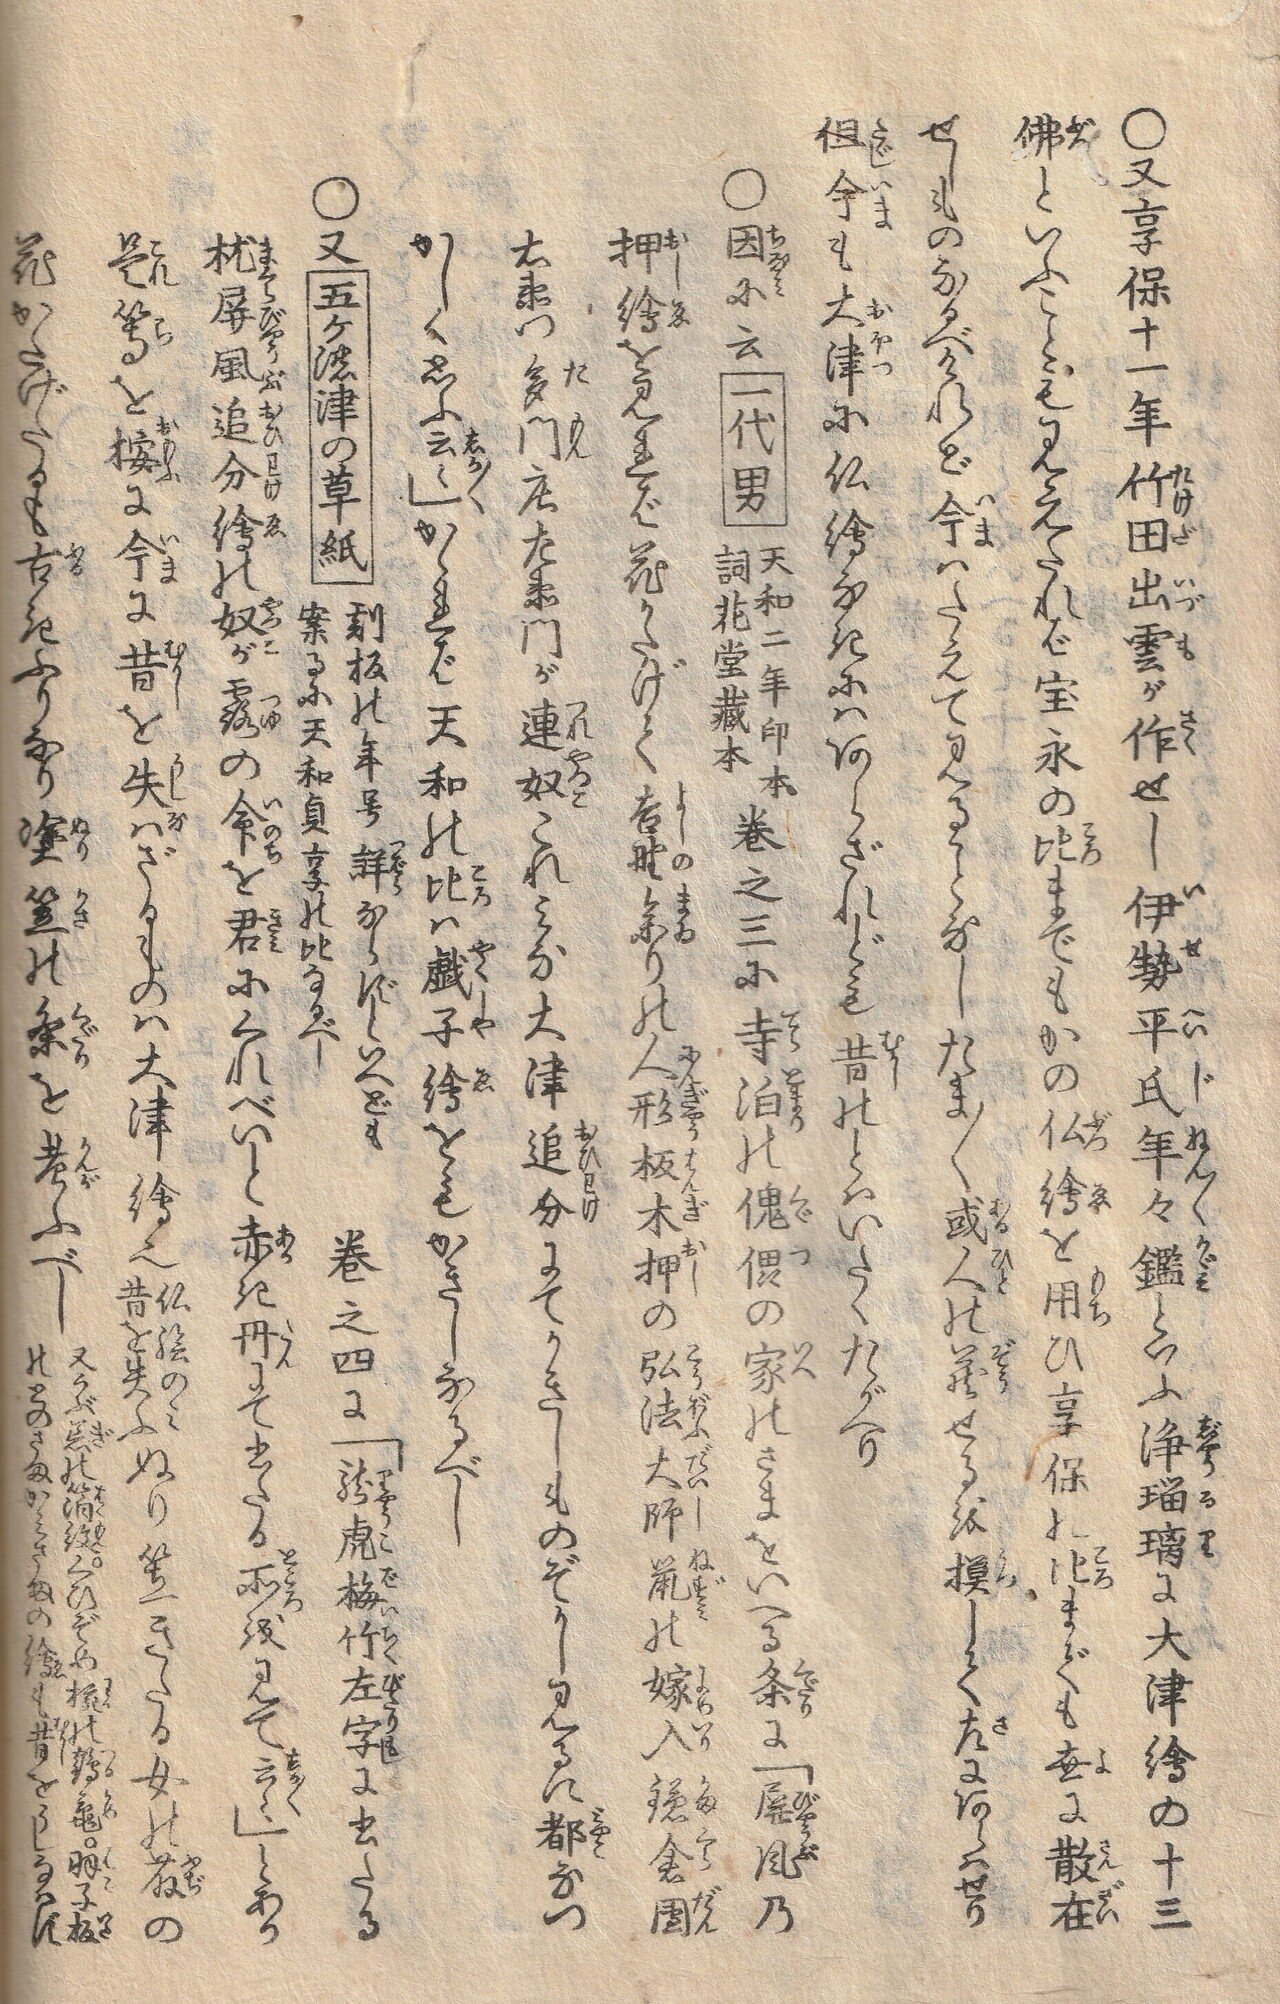 〇又享保十一年竹田出雲が作せし伊勢平氏年々鑑といふ浄瑠璃に大津繪の十三
佛といふことも見えたれば宝永の比までもかの仏繪を用ひ享保の比までも世に散在
せしものなるべけれど今はたえて見ることなしたま〳〵或人の蔵せるを摸して左にあらはせり
但今も大津に仏繪なきにはあらざれども昔のとはいたくたがへり
〇因に云一代男
天和二年印本
詞花堂藏本
巻之三に寺泊の傀儡の家のさまをいへる条に「屏風の
押繪を見れば花かたげて吉野参りの人形板木押の弘法大師鼠の嫁入鎌倉團
右衛門多門庄左衛門が連奴これみな大津追分にてかきしものぞかし見るに都なつ
かしく思ふ云々」かゝれば天和の比は戯子繪をもかきしなるべし
〇又五ケ濃津の草紙
刻板の年号詳ならずといへども
案るに天和貞享の比なるべし
巻之四に「龍虎梅竹左字に出たる
枕屏風追分繪の奴が露の命を君にくれべいと赤き丹にて出たる所を見て云々」とあり
是等を按に今に昔を失はざるものは大津繪也
仏絵のみ
昔を失ふ
ぬり笠きたる女の藤の
花かたげたるも古きふりなり塗笠の条を考ふべし